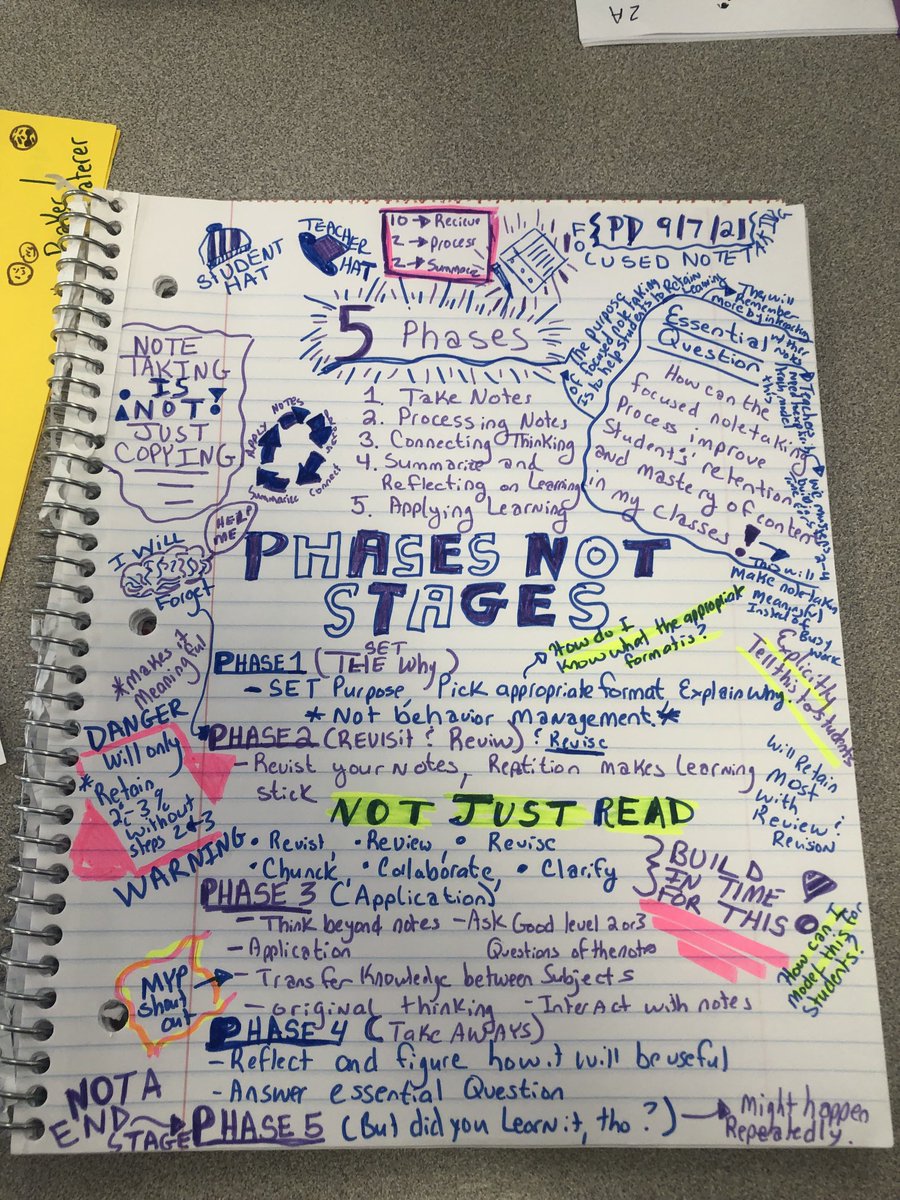 2A
Baker /
{PD 9/7/21}
FOCUSED NOTE TAKING
STUDENT
HAT
TEACHER
HAT
10 → Recieve
2 → Process
2 → Summarize
5 Phases
1. Take Notes
2. Processing Notes
3. Connecting Thinking
4. Summarize and
Reflecting on Learning
5. Applying Learning
NOTE
TAKING
IS
NOT
JUST
COPYING
NOTES
Connect
Summarize
APPLY
HELP
ME
I Will
Forget
The Purpose
of focused notetaking
is to help students to Retain
Learning
They will
Remember
more by interacting
with their
notes
Essential
Question
How can the
focused notetaking
Process improve
Students' retention
and mastery of content
in my classes
This will
Make notetaken
meanigful
Instead of
Busy
work
PHASES NOT
STAGES
How do I
know what the appropiate
format is?
Explicitly
Tell this to students
*Makes it
Meaningful
PHASE 1 (SET THE Why)
- SET Purpose, Pick appropriate format, Explain why.
*Not behavior management.*
*PHASE 2 (REVISIT & Reviw) & Revise
- Revist your notes, Reptition makes learning
stick
DANGER
Will only
*Retain
2-3%
without
steps 2+3
WARNING
NOT JUST READ
• Revist • Review, • Revise
• Chunck, • Collaborate, • Clarify
Will Retain
Most
with
Review &
Revison
BUILD
IN TIME
FOR THIS
How can I
model this for
students?
PHASE 3 (Application)
- Think beyond notes - Ask Good level 2 or 3
- Application Questions of the note
- Transfer Knowledge between Subjects
- original thinking - Interact with notes
MYP
shout
out
PHASE 4 (Take AWAYS)
- Reflect and figure how it will be useful
- Answer essential Question
NOT A
END
STAGE
PHASE 5 (But did you Learn it, tho?) → Might happen
Repeatedly.